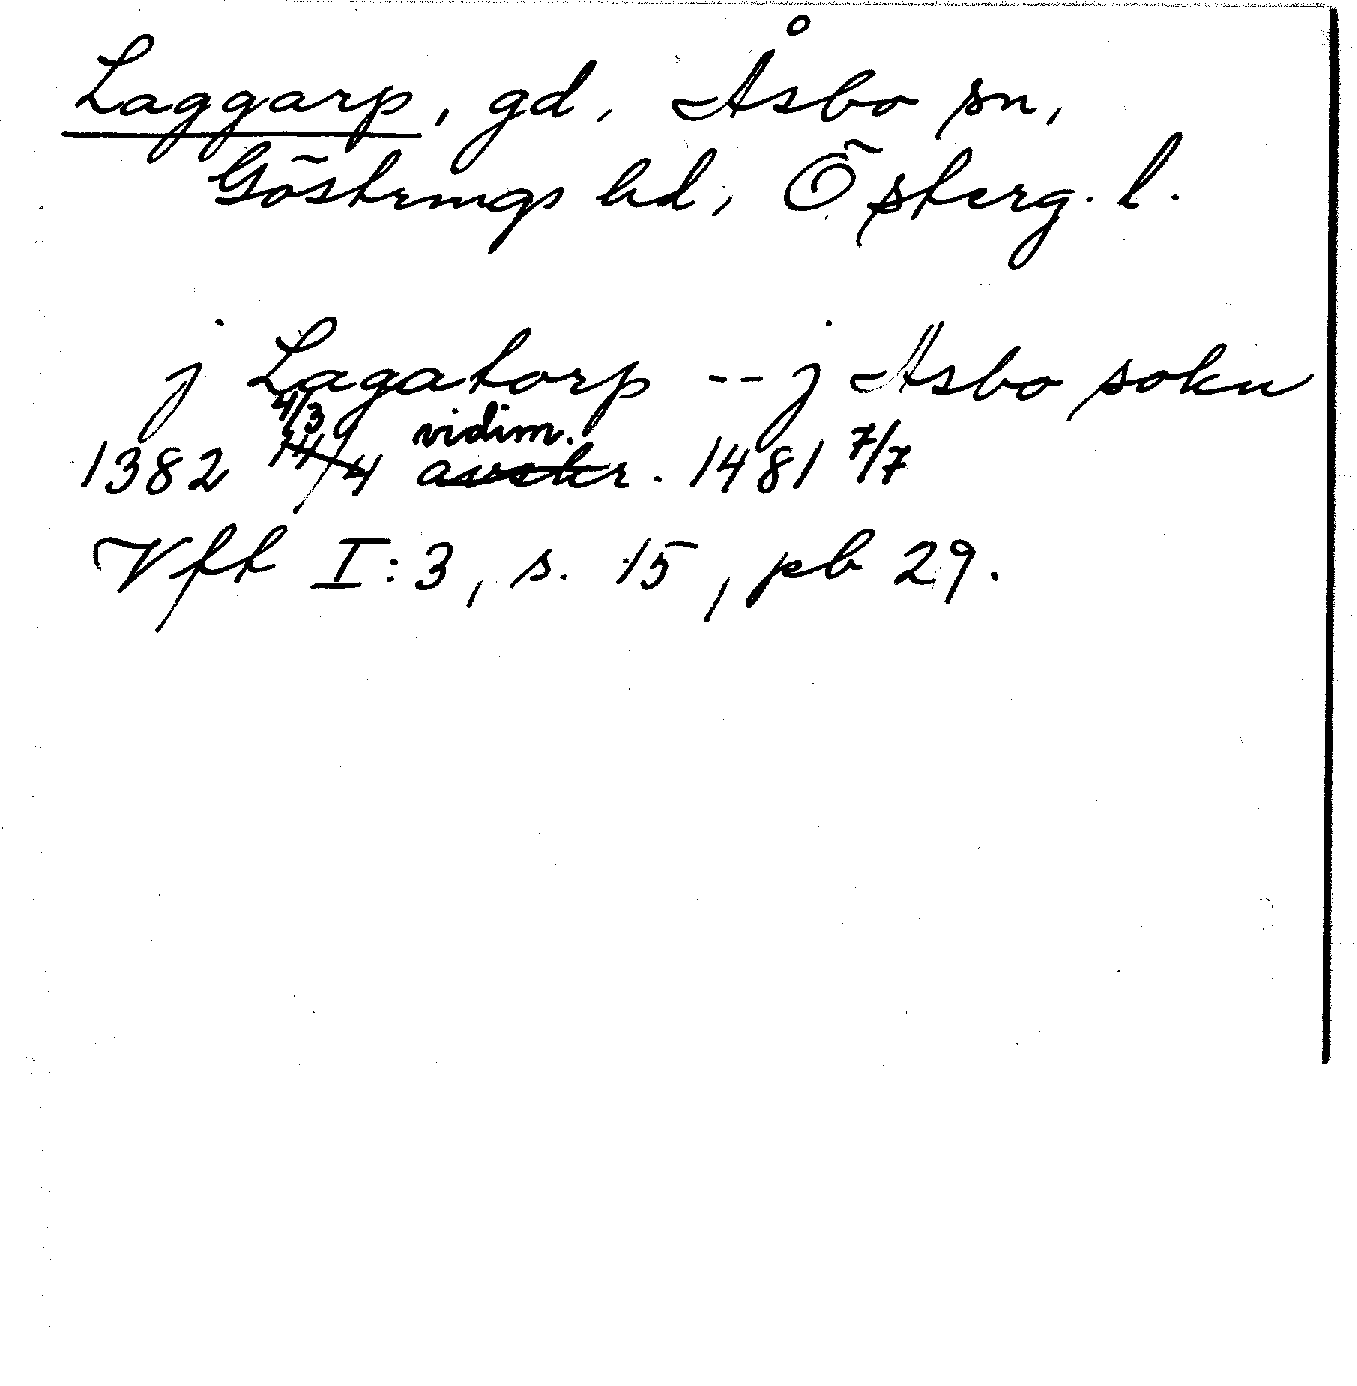 Laggarp, gd, Åsbo sn,
Göstrings hd, Österg. l.
j Lagatorp -- j Asbo sokn
4/3 vidim.
1382 14/4 avskr. 1481 7/7
Vft I:3, s. 15, pb 29.